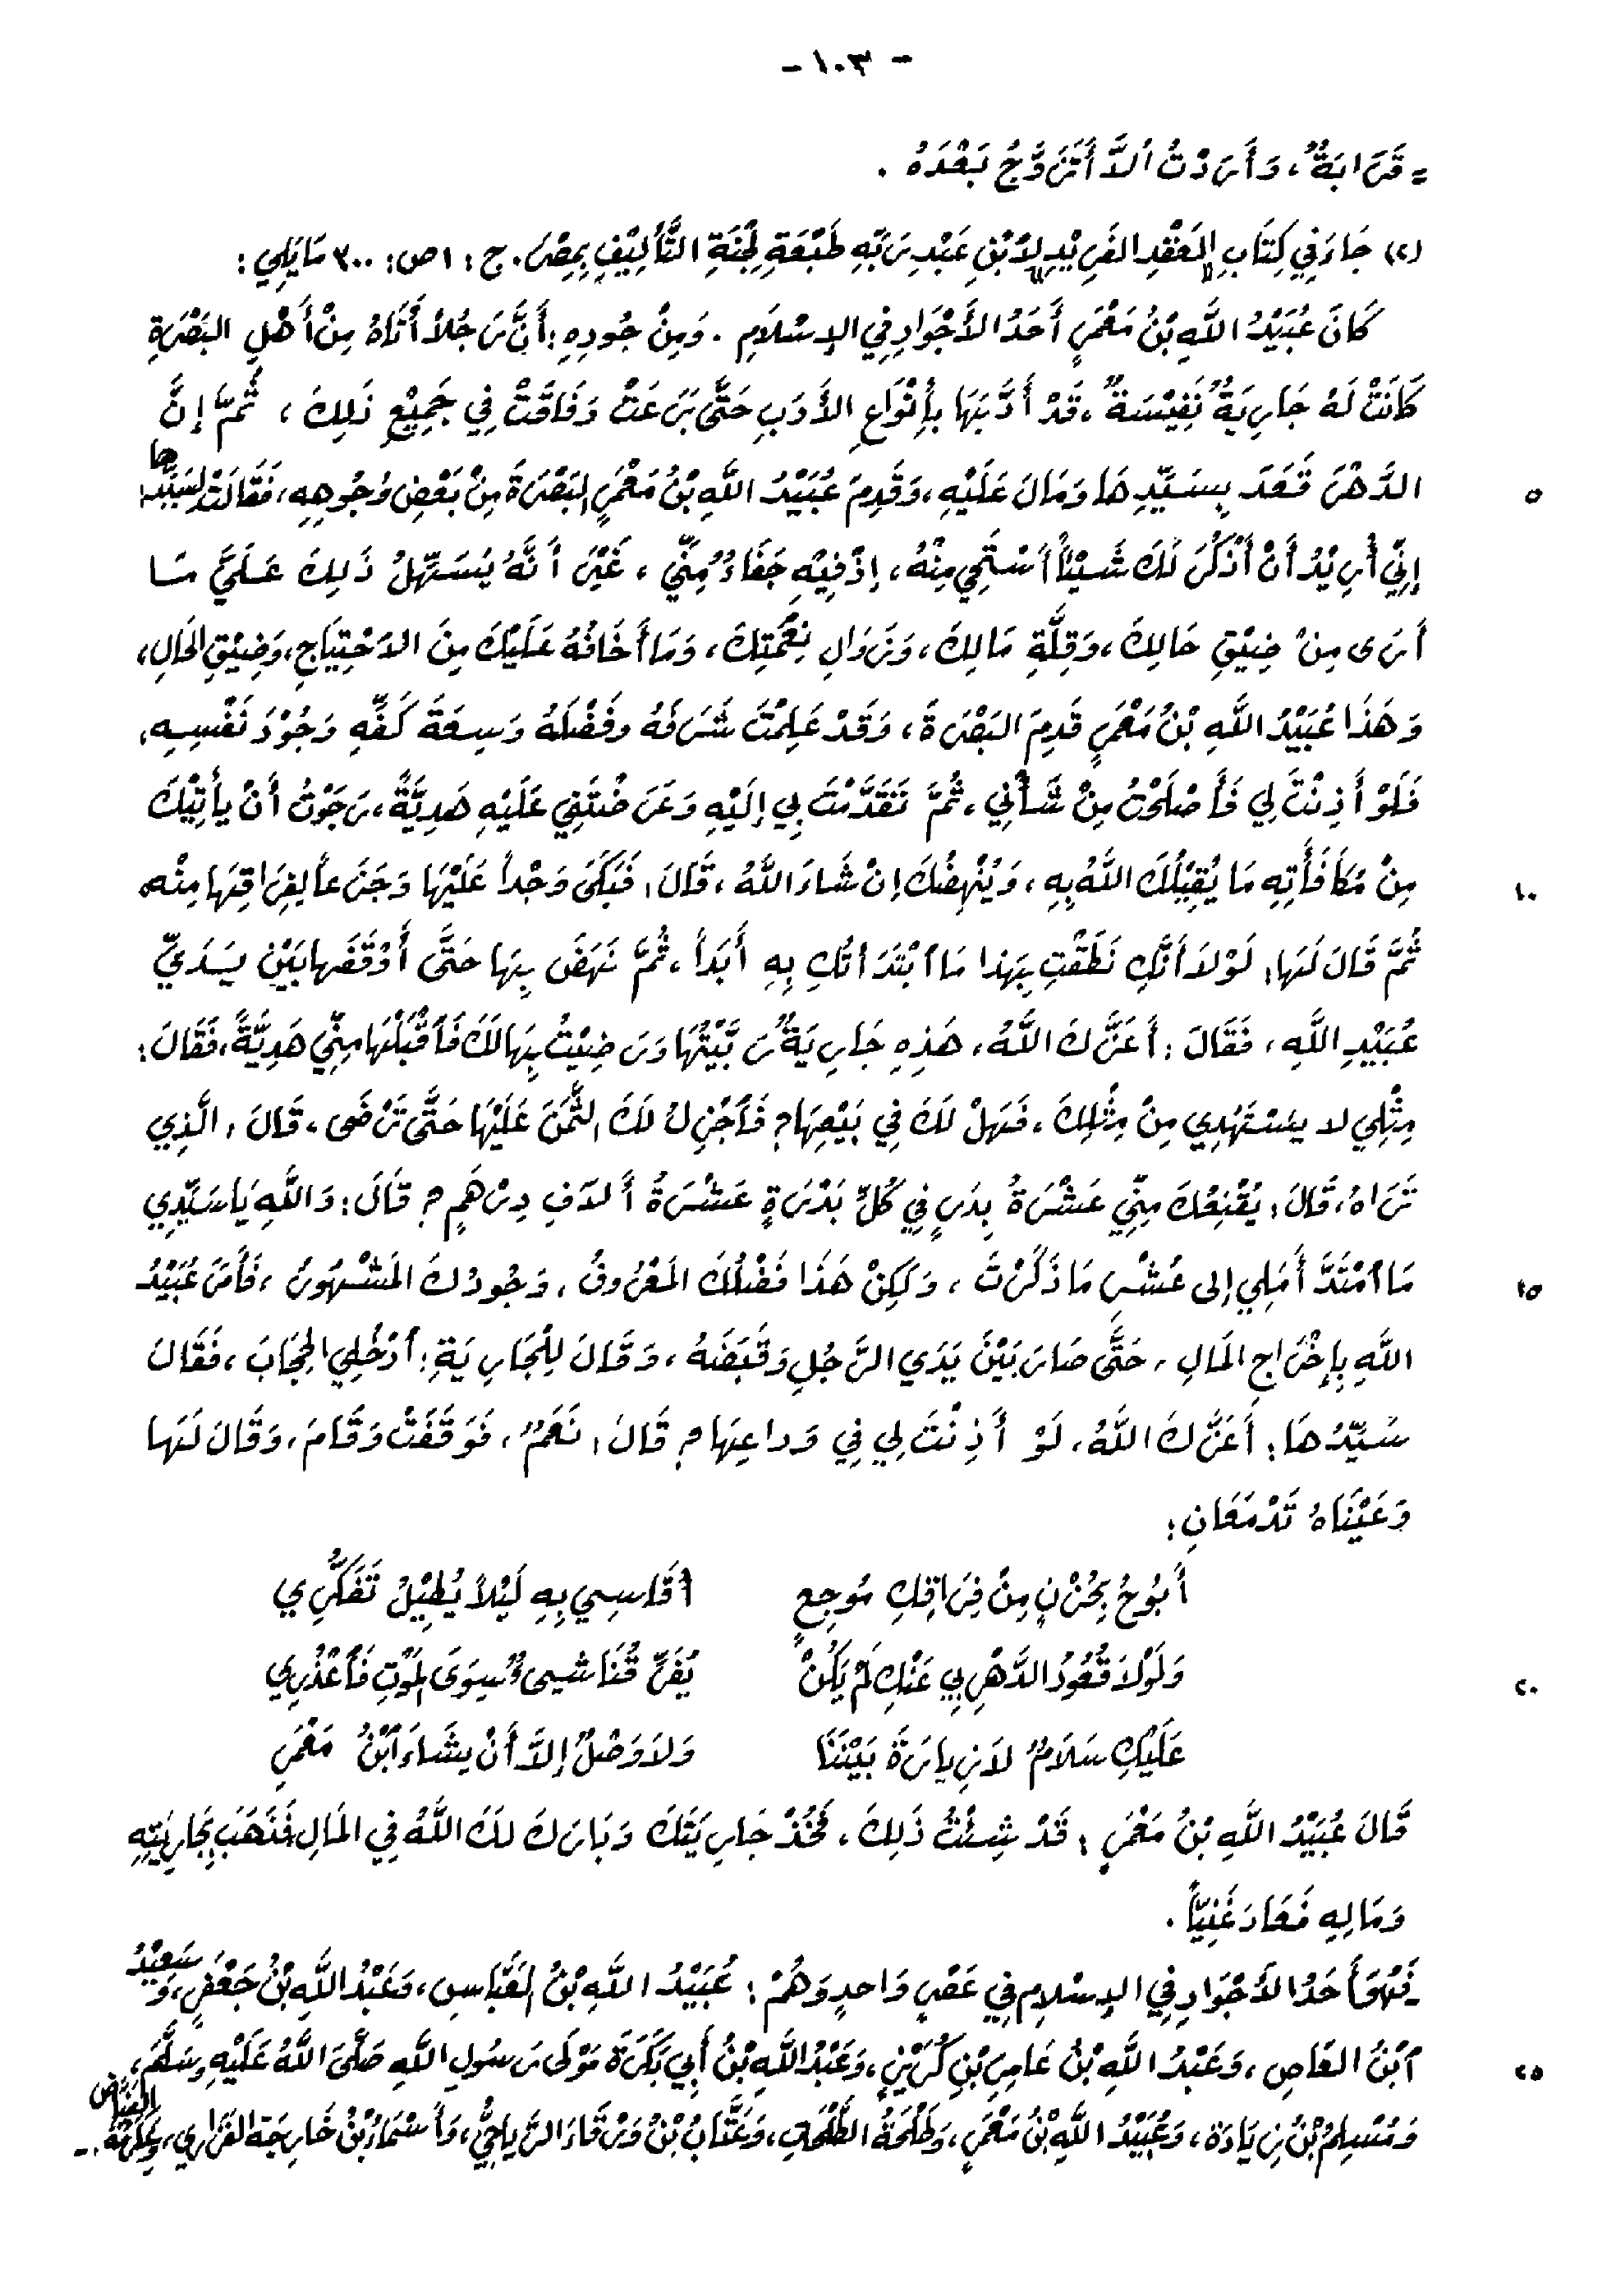 - ١٠٣ -
= قَرَابَةٌ، وَأَرَدْتُ ألاَّ أتَزَوَّجُ بَعْدَهُ .
(٢) جَاءَ فِي كِتَابِ "العَقْدِ الفَرِيْدِ" لاِبْنِ عَبْدِ رَبِّهِ طَبْعَةِ لَجْنَةِ التَّأْلِيْفِ بِمِصْرَ. ج: ١ ص: ٣٠٠ مَا يَلِي:
كَانَ عُبَيْدُ اللَّهِ بْنُ مَعْمَرٍ أَحَدُ الأَجْوَادِ فِي الإِسْلاَمِ . وَمِنْ جُودِهِ: أَنَّ رَجُلاً أَتَاهُ مِنْ أَهْلِ البَصْرَةِ
كَانَتْ لَهُ جَارِيَةٌ نَفِيْسَةٌ، قَدْ أَدَّبَهَا بِأَنْوَاعِ الأَدَبِ حَتَّى بَرَعَتْ وَفَاقَتْ فِي جَمِيْعِ ذَلِكَ، ثُمَّ إِنَّ
الدَّهْرَ قَعَدَ بِسَيِّدِهَا وَمَالَ عَلَيْهِ، وَقَدِمَ عُبَيْدُ اللَّهِ بْنُ مَعْمَرٍ البَصْرَةَ مِنْ بَعْضِ وُجُوهِهِ، فَقَالَتْ لِسَيِّدِهَا
٥
إِنِّي أُرِيْدُ أَنْ أَذْكُرَ لَكَ شَيْئاً أَسْتَحِي مِنْهُ، إِذْ فِيْهِ جَفَاءٌ مِنِّي، غَيْرَ أَنَّهُ يُسَهِّلُ ذَلِكَ عَلَيَّ مَا
أَرَى مِنْ ضِيْقِ حَالِكَ، وَقِلَّةِ مَالِكَ، وَزَوَالِ نِعْمَتِكَ، وَمَا أَخَافُهُ عَلَيْكَ مِنَ الاحْتِيَاجِ، وَضِيْقِ الحَالِ،
وَهَذَا عُبَيْدُ اللَّهِ بْنُ مَعْمَرٍ قَدِمَ البَصْرَةَ، وَقَدْ عَلِمْتَ شَرَفَهُ وفَضْلَهُ وَسِعَةَ كَفِّهِ وَجُوْدَ نَفْسِهِ،
فَلَوْ أَذِنْتَ لِي فَأَصْلَحْتُ مِنْ شَأْنِي، ثُمَّ تَقَدَّمْتَ بِي إِلَيْهِ وَعَرَضْتَنِي عَلَيْهِ هَدِيَّةً، رَجَوْتُ أَنْ يأْتِيْكَ
مِنْ مُكَافَأَتِهِ مَا يُقِيْلُكَ اللَّهُ بِهِ، وَيُنْهِضُكَ إِنْ شَاءَ اللَّهُ، قَالَ: فَبَكَى وَجْداً عَلَيْهَا وَجَزَعاً لِفِرَاقِهَا مِنْهُ
١٠
ثُمَّ قَالَ لَهَا: لَوْلاَ أَنَّكِ نَطَقْتِ بِهَذا مَا ابْتَدَأتُكِ بِهِ أَبَداً، ثُمَّ نَهَضَ بِهَا حَتَّى أَوْقَفَها بَيْنَ يَدَيّ
عُبَيْدِ اللَّهِ، فَقَالَ: أَعَزَّكَ اللَّهُ، هَذِهِ جَارِيَةٌ رَبَّيْتُهَا وَرَضِيْتُ بِهَا لَكَ فَاقْبَلْهَا مِنِّي هَدِيَّةً، فَقَالَ:
مِثْلِي لا يسْتَهْدِي مِنْ مِثْلِكَ، فَهَلْ لَكَ فِي بَيْعِهَا؟ فَأُجْزِلُ لَكَ الثَّمَنَ عَلَيْهَا حَتَّى تَرْضَى، قَالَ: الَّذِي
تَرَاهُ، قَالَ: يُقْنِعُكَ مِنِّي عَشْرَةُ بِدَرٍ فِي كُلِّ بَدْرَةٍ عَشْرَةُ ألاَفِ دِرْهَمٍ؟ قَالَ: وَاللَّهِ يَا سَيِّدِي
مَا امْتَدَّ أَمَلِي إلى عُشْرِ مَا ذَكَرْتَ، وَلَكِنْ هَذَا فَضْلُكَ المَعْرُوفُ، وَجُودُكَ المَشْهُورُ، فَأَمَرَ عُبَيْدُ
١٥
اللَّهِ بِإِخْرَاجِ المَالِ، حَتَّى صَارَ بَيْنَ يَدَي الرَّجُلِ وَقَبَضَهُ، وَقَالَ لِلْجَارِيَةِ: ادْخُلِي الحِجَابَ، فَقَالَ
سَيِّدُهَا: أَعَزَّكَ اللَّهُ، لَوْ أَذِنْتَ لِي فِي وَداعِهَا؟ قَالَ: نَعَمْ، فَوَقَفَتْ وَقَامَ، وَقَالَ لَهَا
وَعَيْنَاهُ تَدْمَعَانِ:
أَبُوحُ بِحُزْنٍ مِنْ فِرَاقِكِ مُوجِعٍ    أُقَاسِي بِهِ لَيْلاً يُطِيْلُ تَفَكُّرِي
وَلَوْلاَ قُعُودُ الدَّهْرِ بِي عَنْكِ لَمْ يَكُنْ    يُفَرِّقُنَا شَيىءٌ سِوَى المَوْتِ فَاعْذُرِي
٢٠
عَلَيْكِ سَلاَمٌ لاَ زِيارَةَ بَيْنَنَا    وَلاَ وَصْلٌ إِلاَّ أَنْ يشَاءَ ابْنُ مَعْمَرِ
قَالَ عُبَيْدُ اللَّهِ بْنُ مَعْمَرٍ: قَدْ شِئْتُ ذَلِكَ، فَخُذْ جَارِيَتَكَ وَبَارَكَ لَكَ اللَّهُ فِي المَالِ فَذَهَبَ بِجَارِيَتِهِ
وَمَالِهِ فَعَادَ غَنِيّاً .
- فَهُوَ أَحَدُ الأَجْوَادِ فِي الإِسْلامِ فِي عَصْرٍ وَاحدٍ وَهُمْ: عُبَيْدُ اللَّهِ بْنُ العَبَّاسِ، وَعَبْدُ اللَّهِ بْنُ جَعْفَرٍ، وَسَعِيْدُ
ابْنُ العَاصِ، وَعَبْدُ اللَّهِ بْنُ عَامِرِ بْنِ كُرَيْزٍ، وَعَبْدُ اللَّهِ بْنُ أَبِي بَكَرَةَ مَوْلَى رَسُولِ اللَّهِ صَلَّى اللَّهُ عَلَيْهِ وسَلَّمَ،
٢٥
وَمُسْلِمُ بْنُ زِيَادَة، وَعُبَيْدُ اللَّهِ بْنُ مَعْمَرٍ، وَطَلْحَةُ الطَّلْحَاتِ، وَعَتَّابُ بْنُ وَرْقَاءَ الرِّياحِيُّ، وَأَسْمَاءُ بْنُ خَارِجَةَ الفَزَاري، وعِكْرِمَةُ الفَيَّاض. -